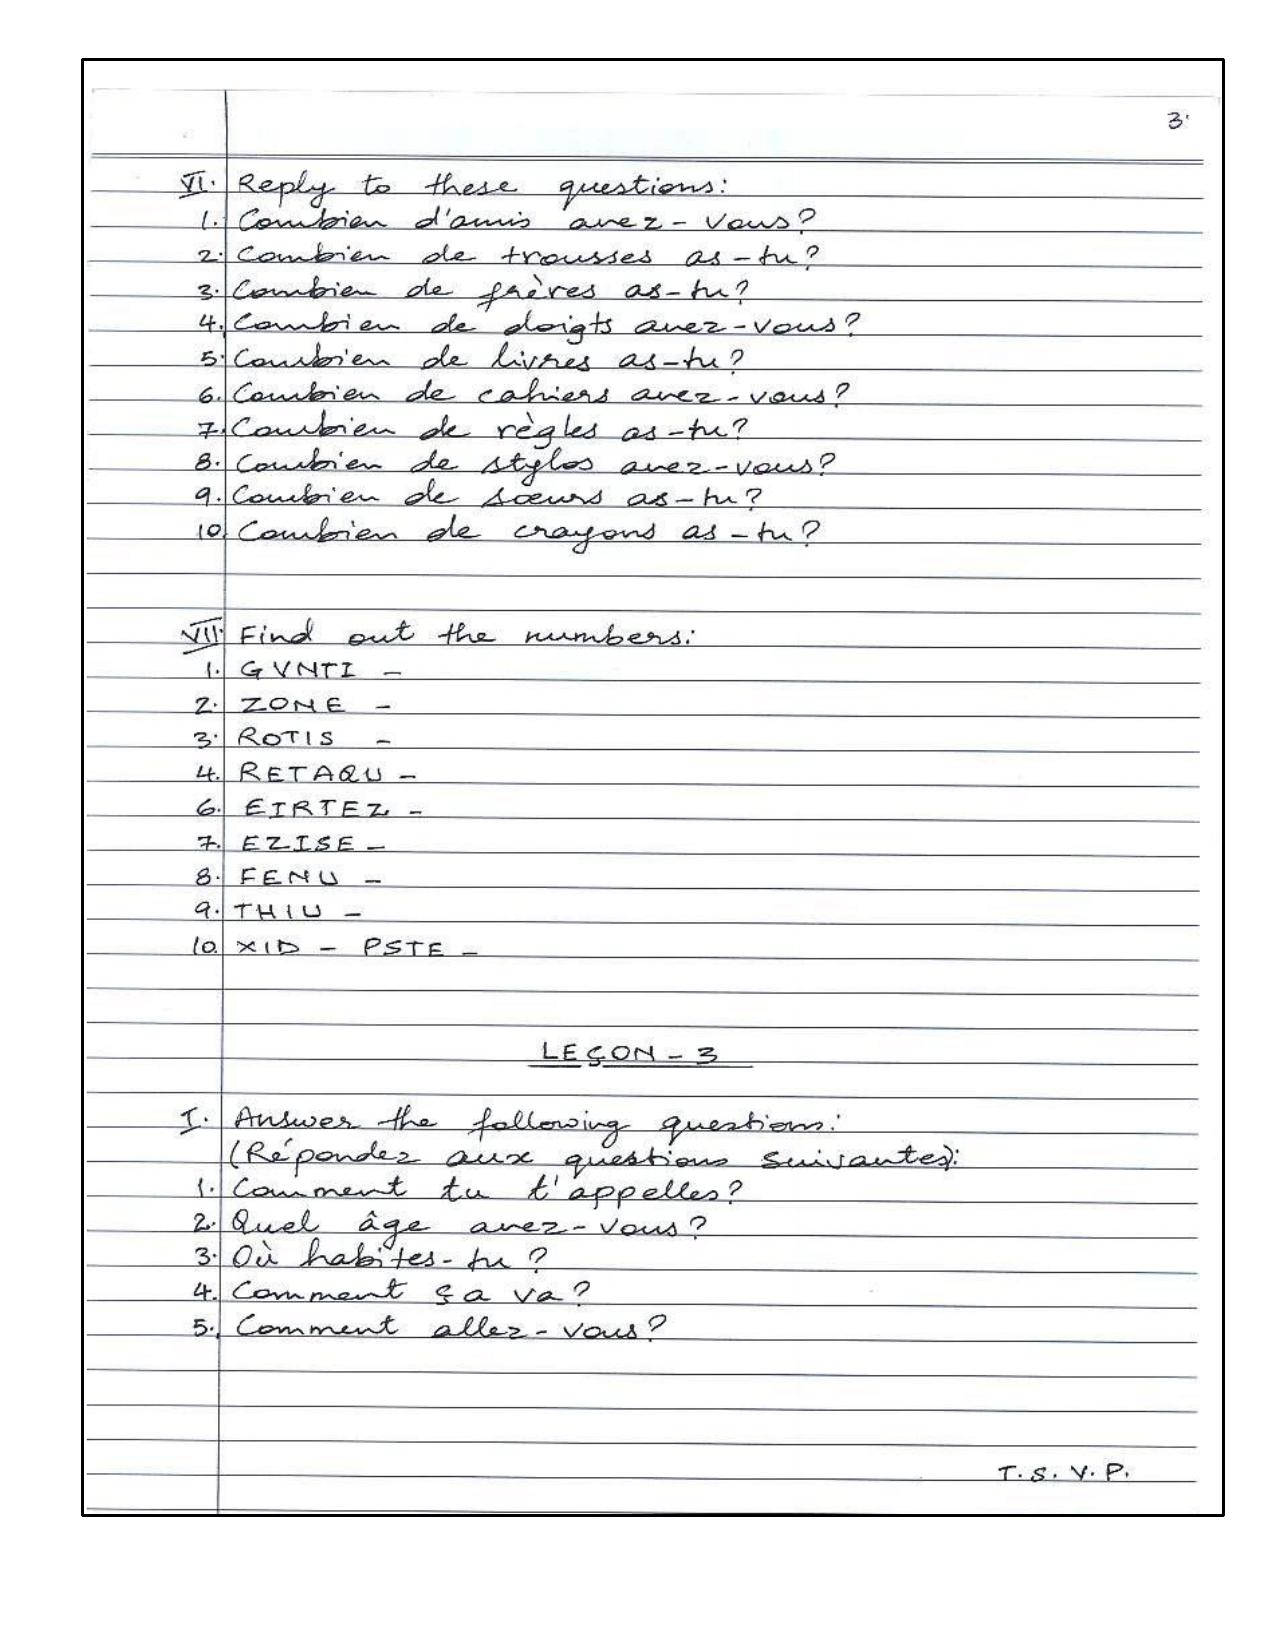 3.
VI. Reply to these questions:
1. Combien d'amis avez-vous?
2. Combien de trousses as-tu?
3. Combien de frères as-tu?
4. Combien de doigts avez-vous?
5. Combien de livres as-tu?
6. Combien de cahiers avez-vous?
7. Combien de règles as-tu?
8. Combien de stylos avez-vous?
9. Combien de sœurs as-tu?
10. Combien de crayons as-tu?
VII. Find out the numbers:
1. GVNTI -
2. ZONE -
3. ROTIS -
4. RETAQU -
6. EIRTEZ -
7. EZISE -
8. FENU -
9. THIU -
10. XID - PSTE -
LEÇON - 3
I. Answer the following questions:
(Répondez aux questions suivantes):
1. Comment tu t'appelles?
2. Quel âge avez-vous?
3. Où habites-tu?
4. Comment ça va?
5. Comment allez-vous?
T.S.V.P.